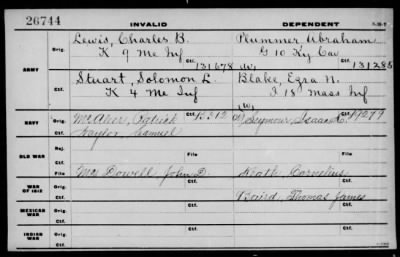 26744 INVALID DEPENDENT
Lewis, Charles B. Plummer Abraham
Orig. K 9 Me Inf G 10 Ky Cav
Ctf. 131678 (W) Ctf. 131285
ARMY
Stuart, Solomon L. Blake, Ezra N.
Orig. K 4 Me Inf I 18 Mass Inf
Ctf. (W) Ctf.
NAVY Orig. Patrick Ctf. (W) Seymour, Isaac Ctf.
Ctf. Taylor, Samuel
OLD WAR Rej.
Ctf. File File
WAR OF 1812 Orig. Mc Dowell, John D. Ctf. Heath, Cornelius Ctf.
Ctf. Baird, Thomas James
MEXICAN WAR Orig. Ctf. Ctf.
INDIAN WAR Orig. Ctf. Ctf.